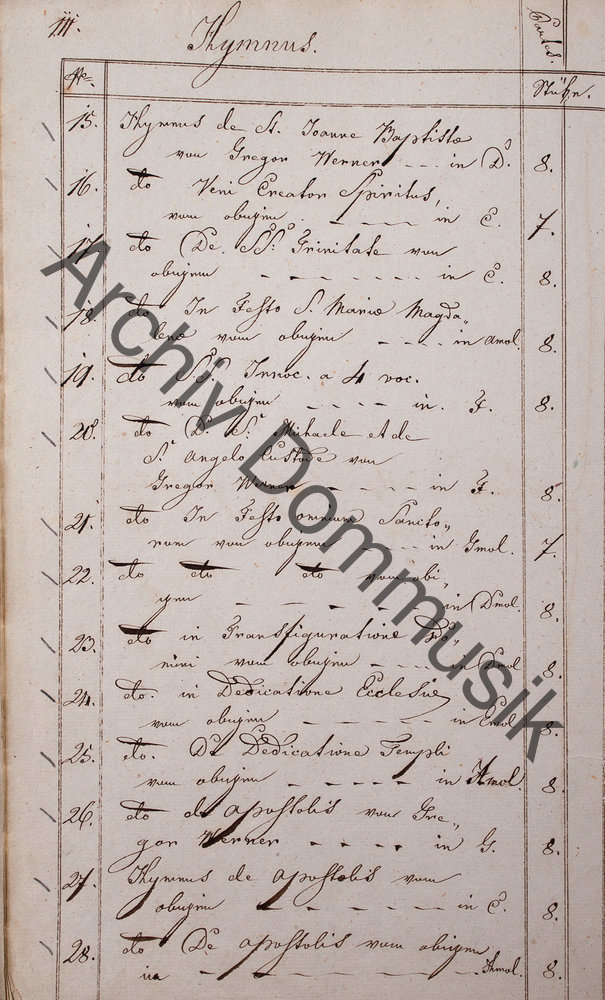 III.
Hymnus.
Partes.
No.
Stühe.
15. Hymnus de St. Joanne Baptistæ
von Gregor Werner --- in D. 8.
16. do Veni Creator Spiritus,
vom obigen. ---- in C. 7.
17. do De SS: Trinitate von
obigen ------- in C. 8.
18. do In Festo S. Mariæ Magda„
lenæ vom obigen ---- in Amol. 8.
19. do S.S. Innoc. a 4 voc.
vom obigen ---- in. F. 8.
20. do D. S. Michaele et de
S. Angelo Custode von
Gregor Werner ---- in F. 8.
21. do In Festo omnium Sancto„
rum von obigen --- in Gmol. 7.
22. do do do vom obi„
gen ------ in Dmol. 8.
23. do in Transfiguratione Do„
mini vom obigen ---- in Dmol 8.
24. do. in Dedicatione Ecclesiæ
vom obigen ------ in Emol 8.
25. do. De Dedicatione Templi
vom obigen ----- in Amol. 8.
26. do de Apostolis von Gre„
gor Werner ----- in G. 8.
27. Hymnus de Apostolis vom
obigen ------ in C. 8.
28. do De Apostolis vom obigen
in -------- Amol. 8.
Archiv Dommusik